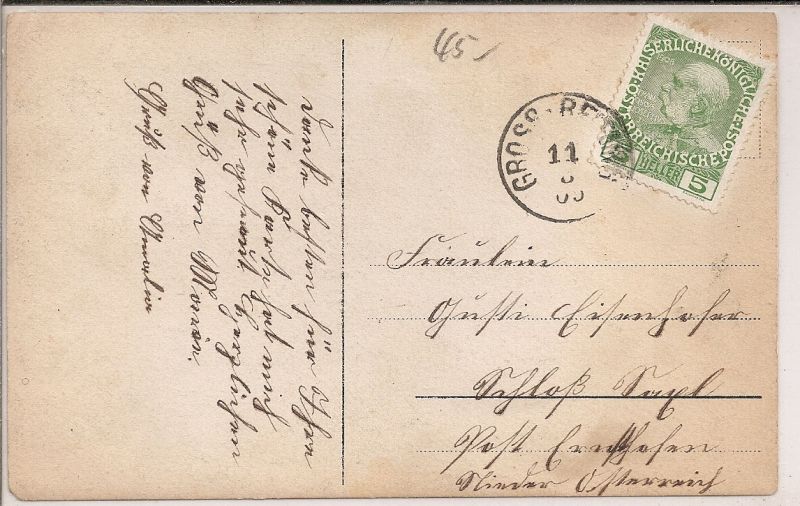 45
danke bestens für Ihre
schöne Karte hat mich
sehr gefreut Herzlichen
Gruß von Marie.
Gruß von Amalia
GROSS-
11
KAISERLICHEKÖNIGLICHE
ÖSTERREICHISCHE POST
1908
5
HELLER
5
Fräulein
Gusti Eisenhofer
Schloß
Post Ernsthofen
Nieder Österreich